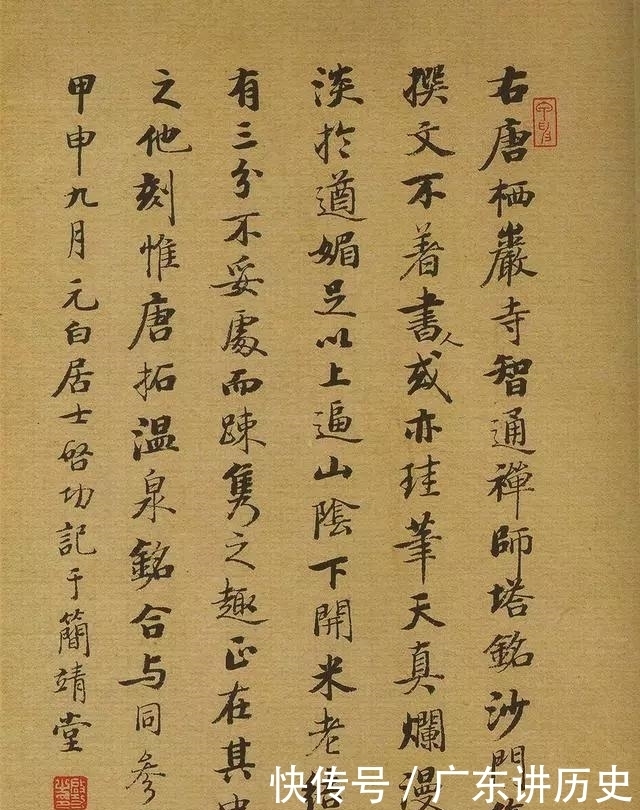 右唐栖巖寺智通禪師塔銘沙門
撰文不着書人或亦珪筆天真爛漫
淡於遒媚足以上逼山陰下開米老
有三分不妥處而踈雋之趣正在其
之他刻惟唐拓温泉銘合与同參
甲申九月元白居士啓功記于簡靖堂
快传号／广东讲历史